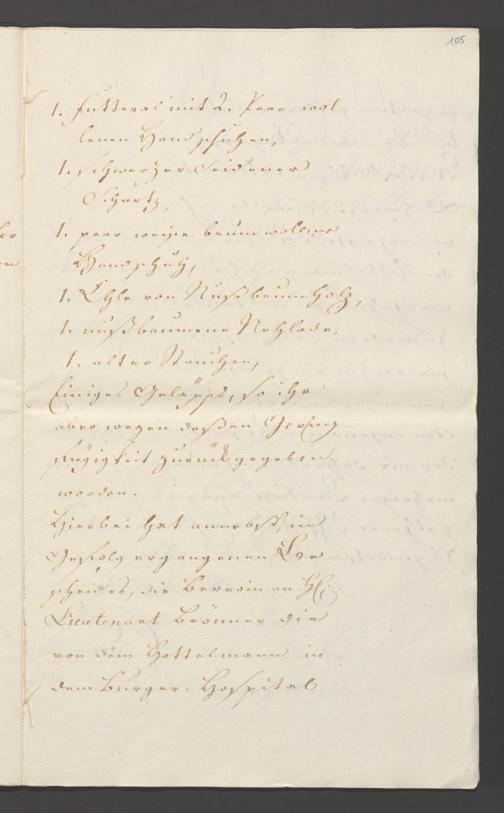 105
1. Futteral mit 2. Paar wol
lenen Handschuhen,
1. schwarzer Seidener
Schurtz,
1. paar weise baumwollene
Handschuh,
1. Ehle von Nußbaumholz,
1. nußbaumene Nehlade,
1. alter Stauchen,
Einiges Geläpps, so ihr
aber wegen deßen Gering
fügigkeit zurückgegeben
worden.
Hierbei hat annebst, in
Gefolg ergangenen Be
scheides, die an H.
Lieutenant Brönner die
von dem Hottelmann in
dem Burger-Hospital